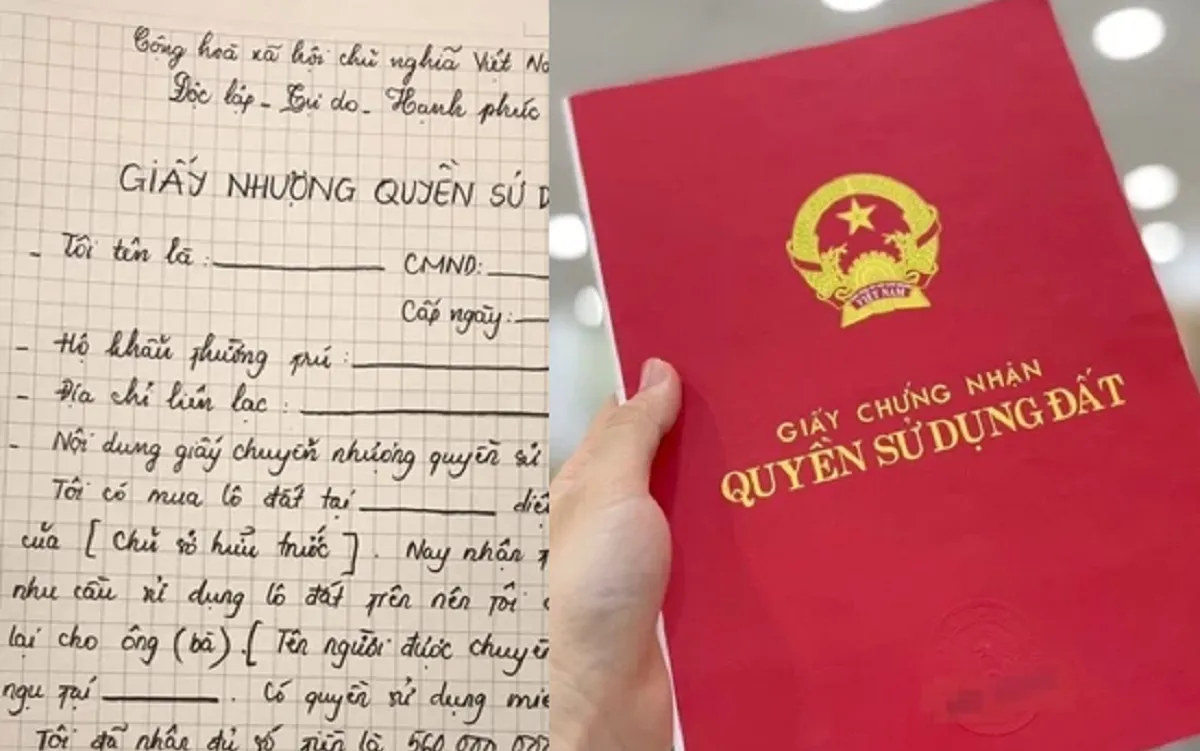 Cộng hoà xã hội chủ nghĩa Việt Na
Độc lập - Tự do - Hạnh phúc
GIẤY NHƯỢNG QUYỀN SỬ D
- Tôi tên là : CMND:
Cấp ngày:
- Hộ khẩu thường trú :
- Địa chỉ liên lạc :
- Nội dung giấy chuyển nhượng quyền sử
Tôi có mua lô đất tại diện
của [ Chủ sở hữu trước ]. Nay nhận
nhu cầu sử dụng lô đất trên nên tôi
lại cho ông (bà) [ Tên người được chuyển
ngụ tại . Có quyền sử dụng
Tôi đã nhận đủ số tiền là 560 000 000
VIỆT NAM
GIẤY CHỨNG NHẬN
QUYỀN SỬ DỤNG ĐẤT